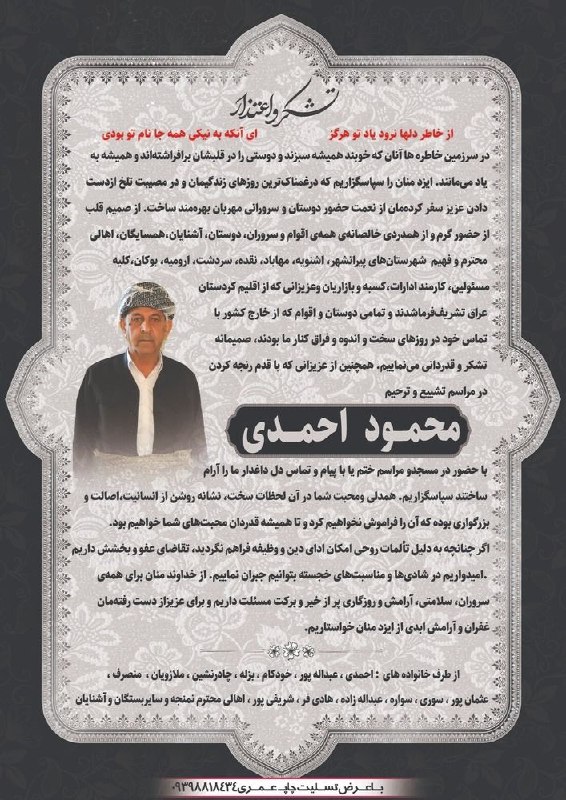 تشکر و اعتذار
از خاطر دلها نرود یاد تو هرگز ای آنکه به نیکی همه جا نام تو بودی
در سرزمین خاطره ها آنان که خوبند همیشه سبزند و دوستی را در قلبشان برافراشته‌اند و همیشه به
یاد می‌مانند. ایزد منان را سپاسگزاریم که درغمناک‌ترین روزهای زندگیمان و در مصیبت تلخ ازدست
دادن عزیز سفر کرده‌مان از نعمت حضور دوستان و سرورانی مهربان بهره‌مند ساخت. از صمیم قلب
از حضور گرم و از همدردی خالصانه‌ی همه‌ی اقوام و سروران، دوستان، آشنایان،همسایگان، اهالی
محترم و فهیم شهرستان‌های پیرانشهر، اشنویه، مهاباد، نقده، سردشت، ارومیه، بوکان،کلیه
مسئولین، کارمند ادارات، کسبه و بازاریان وعزیزانی که از اقلیم کردستان
عراق تشریف‌فرماشدند و تمامی دوستان و اقوام که از خارج کشور با
تماس خود در روزهای سخت و اندوه و فراق کنار ما بودند، صمیمانه
تشکر و قدردانی می‌نماییم. همچنین از عزیزانی که با قدم رنجه کردن
در مراسم تشییع و ترحیم
محمود احمدی
با حضور در مسجدو مراسم ختم یا با پیام و تماس دل داغدار ما را آرام
ساختند سپاسگزاریم. همدلی ومحبت شما در آن لحظات سخت، نشانه روشن از انسانیت،اصالت و
بزرگواری بوده که آن را فراموش نخواهیم کرد و تا همیشه قدردان محبت‌های شما خواهیم بود.
اگر چنانچه به دلیل تألمات روحی امکان ادای دین و وظیفه فراهم نگردید، تقاضای عفو و بخشش داریم
.امیدواریم در شادی‌ها و مناسبت‌های خجسته بتوانیم جبران نماییم. از خداوند منان برای همه‌ی
سروران، سلامتی، آرامش و روزگاری پر از خیر و برکت مسئلت داریم و برای عزیزاز دست رفته‌مان
غفران و آرامش ابدی از ایزد منان خواستاریم.
از طرف خانواده های : احمدی ، عبداله پور ، خودکام ، بزله ، چادرنشین ، ملازویان ، منصرف ،
عثمان پور ، سوری ، سواره ، عبداله زاده ، هادی فر ، شریفی پور ، اهالی محترم تمنجه و سایربستگان و آشنایان
با عرض تسلیت چاپ عمری ۰۹۳۹۸۸۱۸۴۳۴